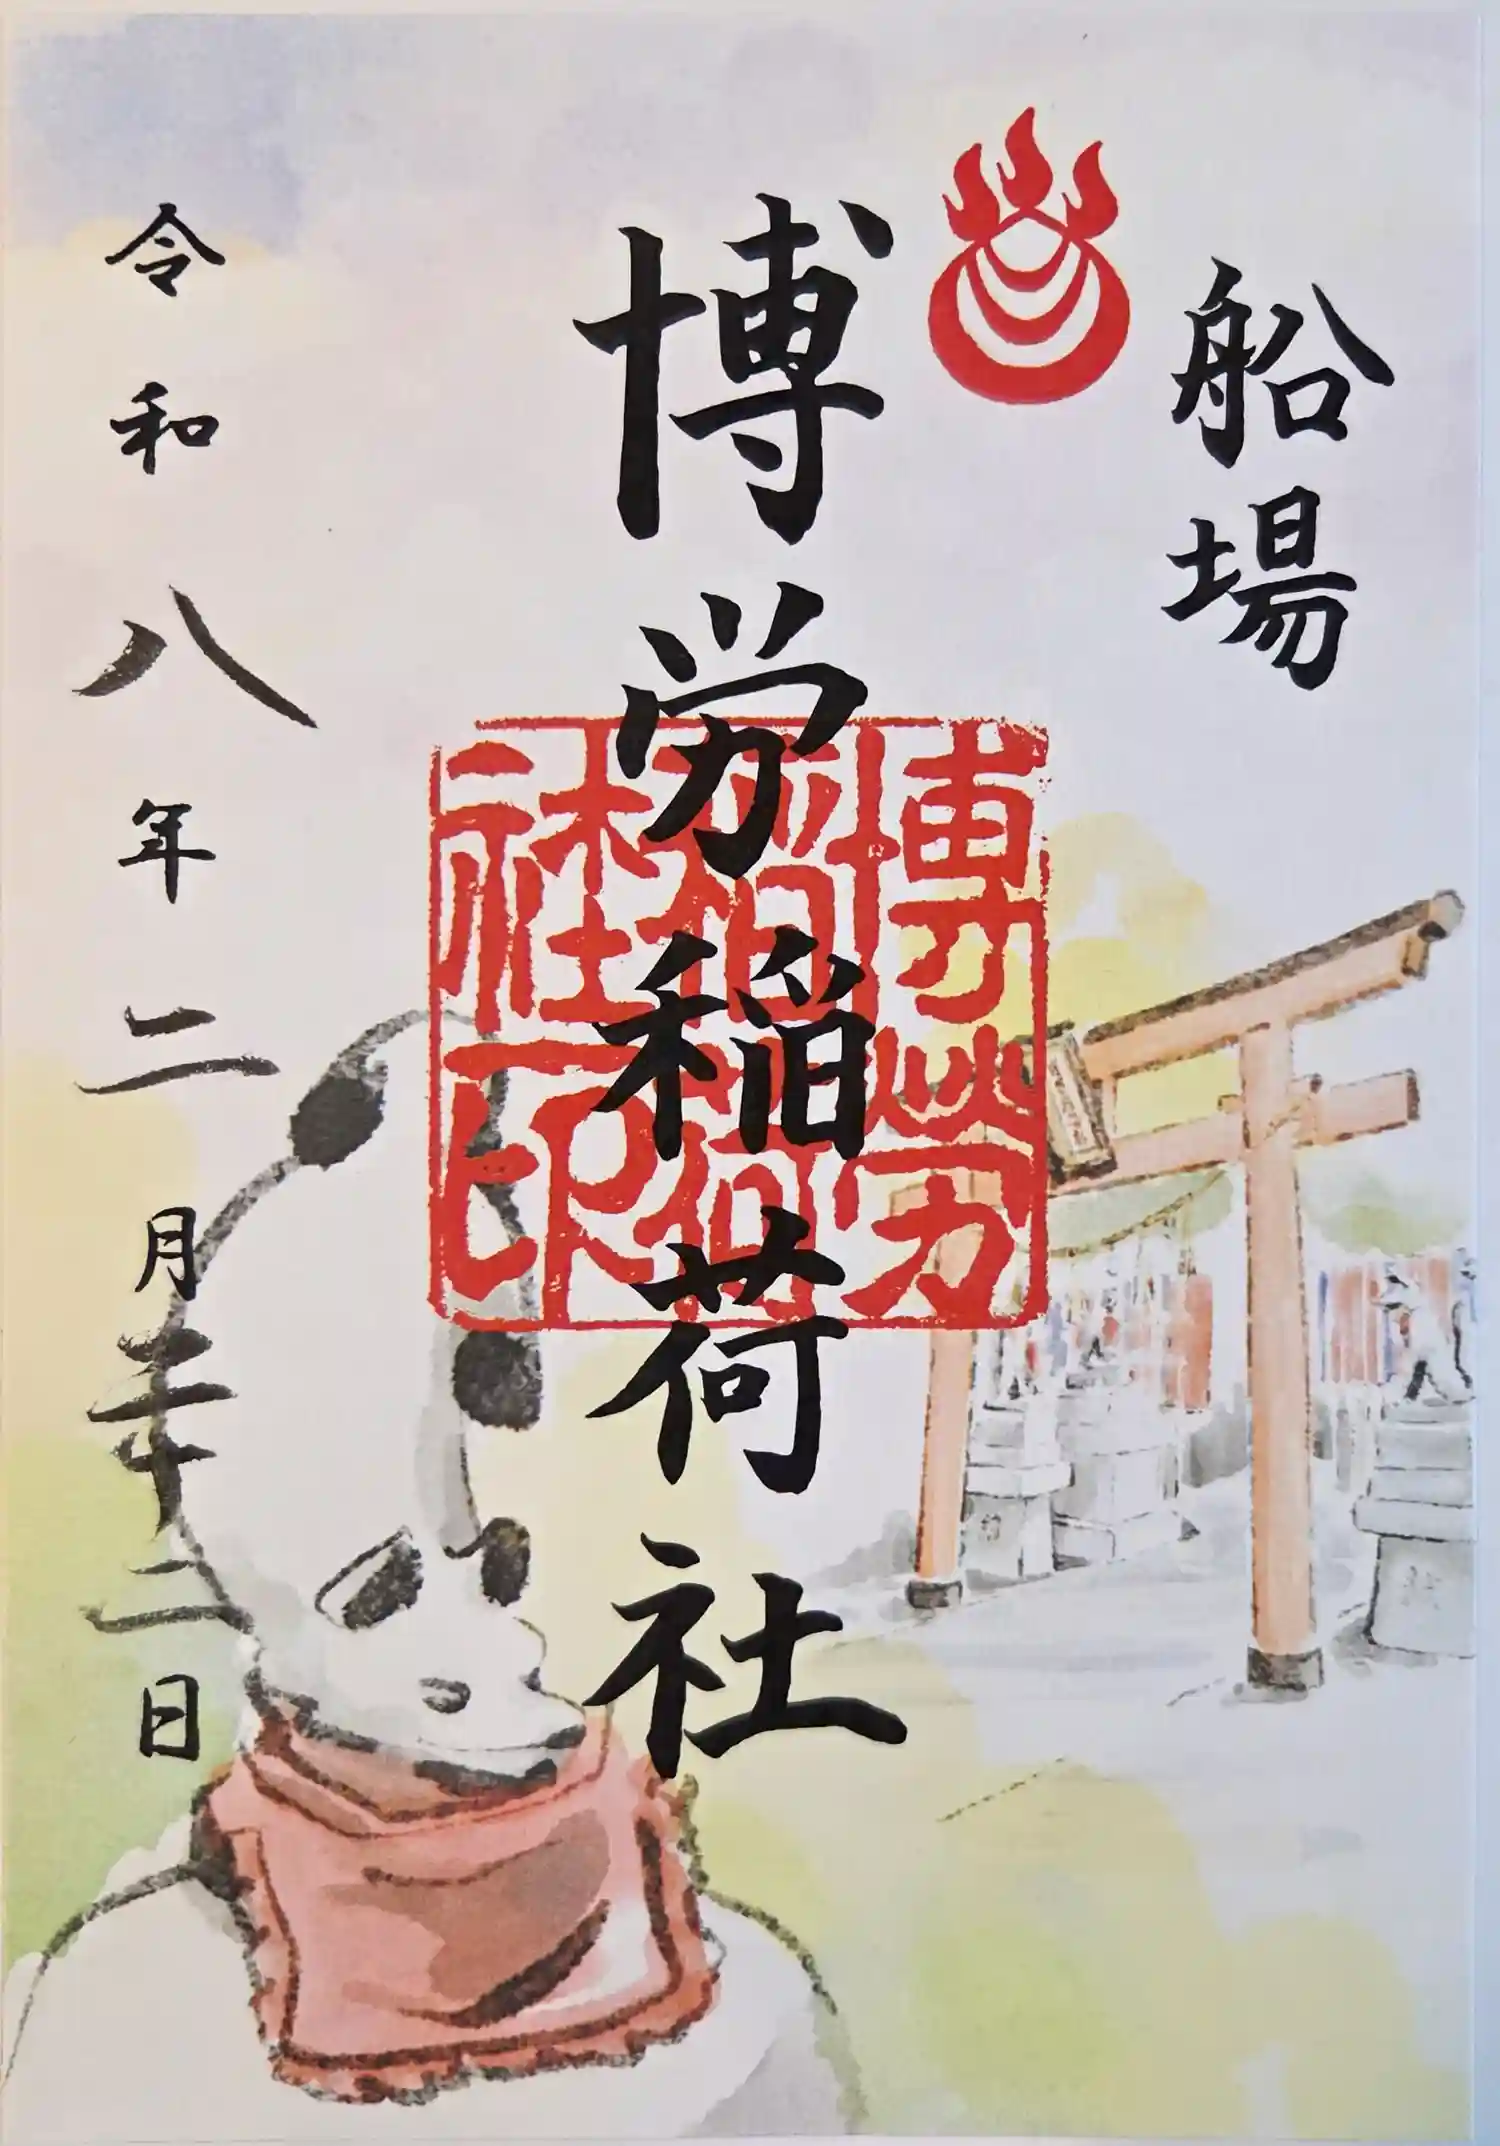 船場
博労稲荷社
令和八年二月二十二日
博勞
稲荷
社印